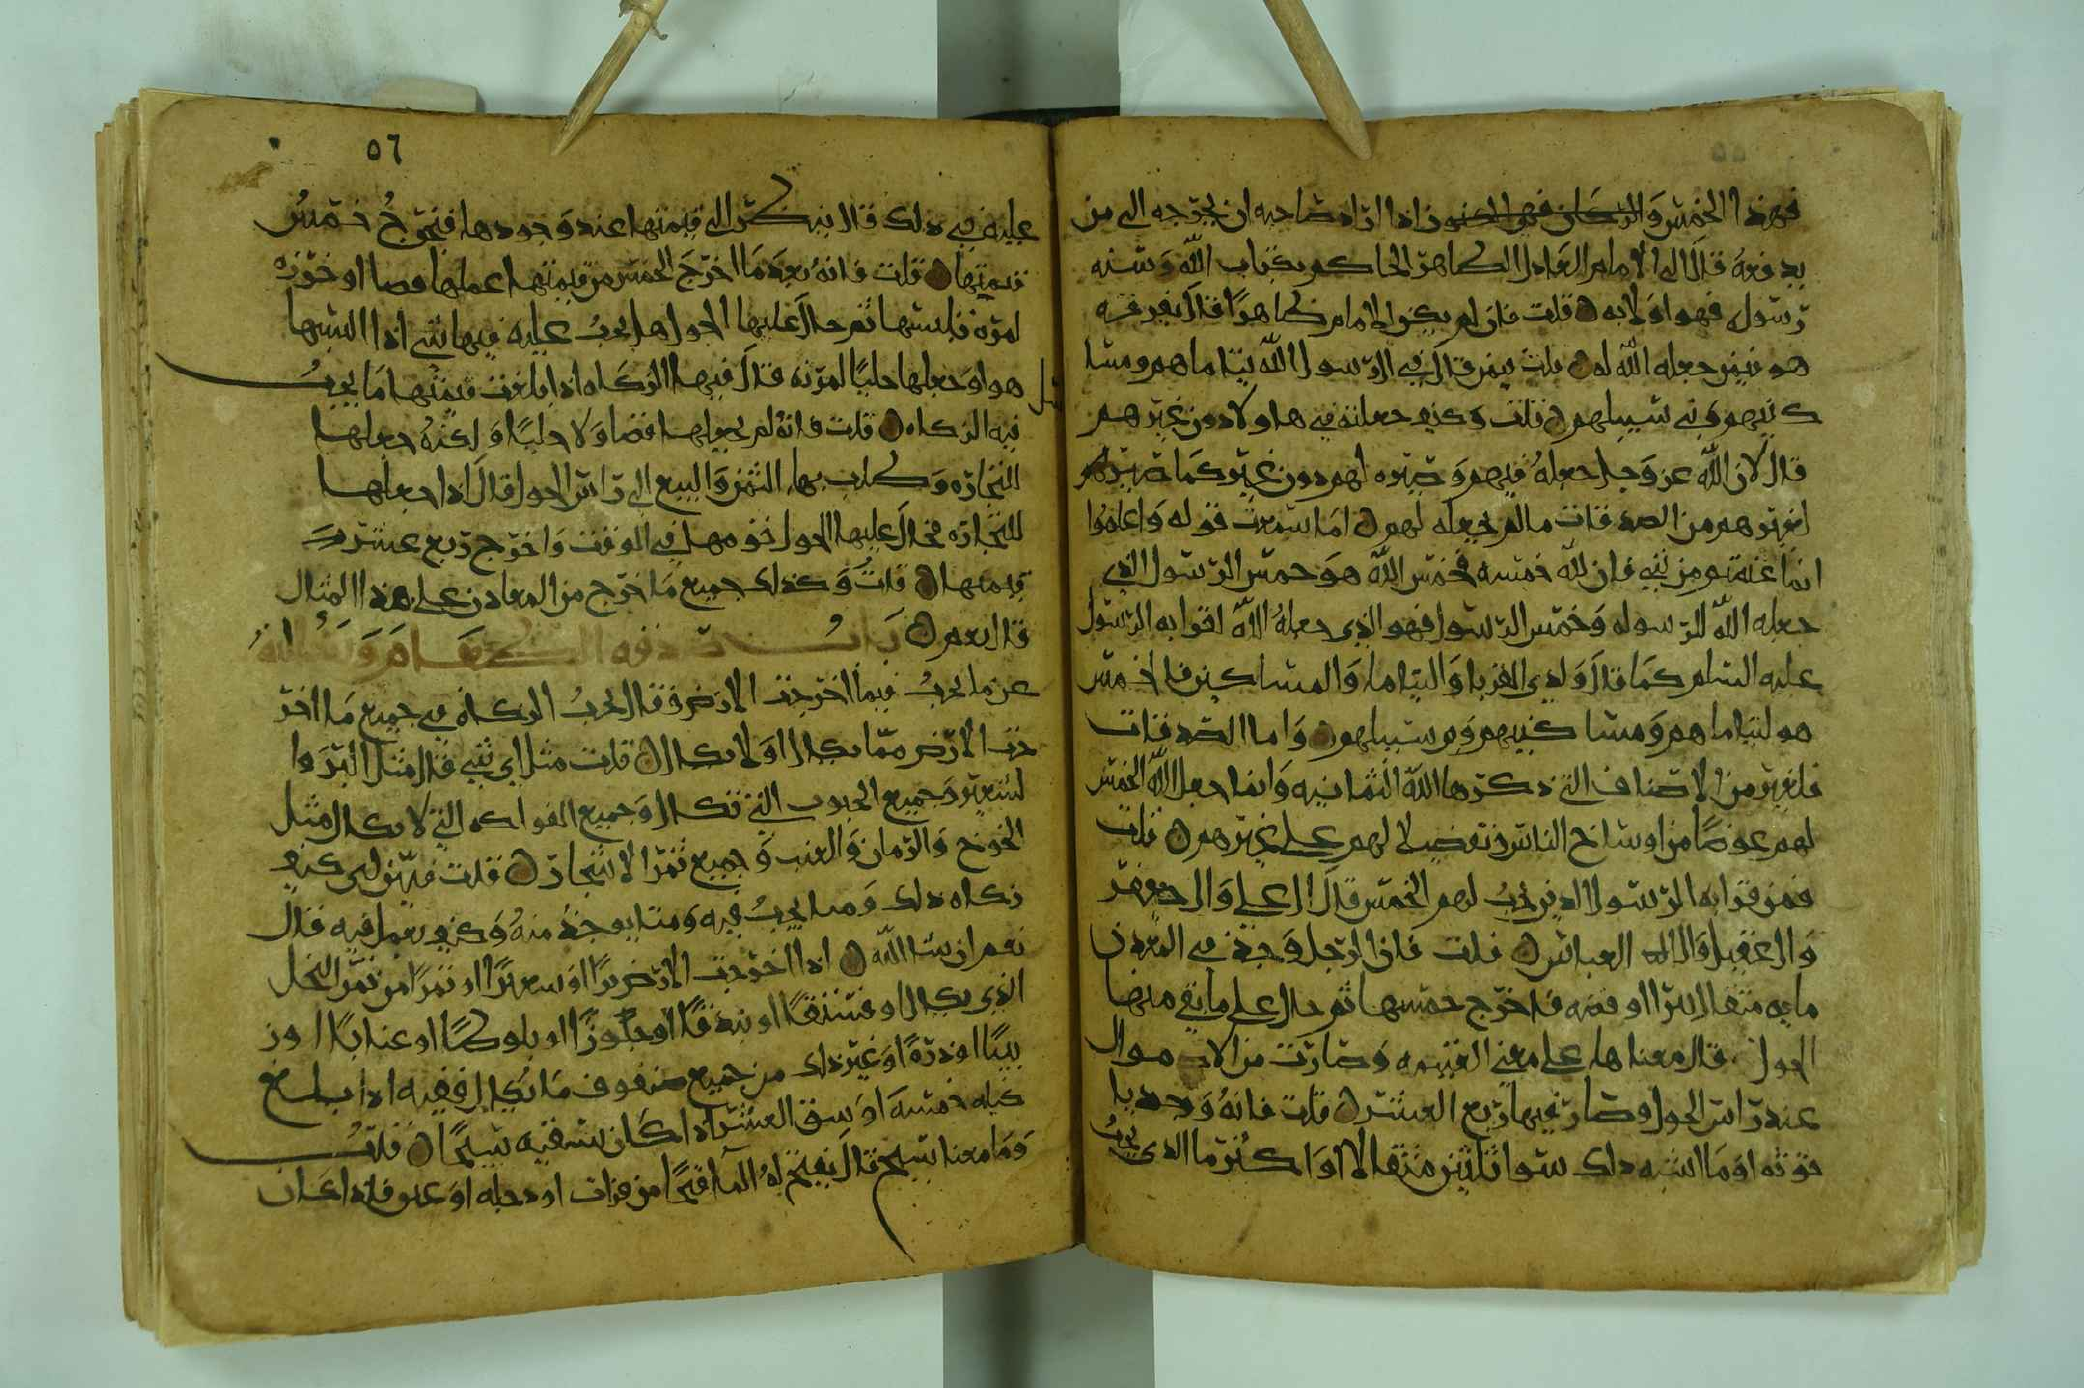 فهذا الخمس والركان فهو الخمس فاذا اراد صاحبه ان يخرجه الى من
يدفعه قال الى الامام العادل الطاهر الحاكم بكتاب الله وسنة
رسوله فهو اولا به قلت فان لم يكن الامام ظاهرا قال يفرقه
هو فيمن جعله الله له قلت فيمن قال في ال رسول الله يتاماهم ومسا
كينهم وبني سبيلهم قلت وكيف جعلته في هاولاد من غيرهم
قال لان الله عز وجل جعله فيهم وصيره لهم دون غيرهم كما صير
لغيرهم من الصدقات ما لم يجعله لهم اما سمعت قوله واعلموا
انما غنمتم من شي فان لله خمسه فخمس الله هو خمس الرسول الذي
جعله الله للرسوله وخمس الرسول فهو الذي جعله الله لقرابه الرسول
عليه السلم كما قال ولذي القربا واليتاما والمساكين فالخمس
هو ليتاماهم ومساكينهم وبن سبيلهم واما الصدقات
فلغيرهم من الاصناف التي ذكرها الله الثمانيه وانما جعل الله الخمس
لهم عوضا من اوساخ الناس وتفضيلا لهم على غيرهم قلت
فمن قرابه الرسول الذين يجب لهم الخمس قال ال علي وال جعفر
وال عقيل وال العباس قلت فان الرجل وجد في المعدن
مايه مثقال تبرا او فضه فاخرج خمسها ثم حال على ما بقي منها
الحول قال معناها على معنى الغنيمه وصارت من الاموال
عند راس الحول وصار فيها ربع العشر قلت فانه وجد يا
قوته او ما اشبه ذلك سوا ثلثين مثقالا او اكثر ما الذي يجب
٥٦
عليه في ذلك قال ينظر الى قيمتها عند وجودها فيخرج خمس
قيمتها قلت فانه بعد ما اخرج الخمس من قيمتها عملها فصا او خرزه
لمره فلبسها ثم حال عليها الحول هل يجب عليه فيها شي اذا البسها
هو او جعلها حليا لمرته قال فيها الزكاه اذا بلغت قيمتها ما يجب
فيه الزكاه قلت فانه لم يجعلها فصا ولا حليا ولكنه جعلها
للتجاره وطلب بها الثمن والبيع الى راس الحول قال اذا جعلها
للتجاره فحال عليها الحول قومها في الوقت واخرج ربع عشر
قيمتها قلت وكذلك جميع ما خرج من المعادن على هذا المثال
قال نعم باب صدقه الطعام وسالته
عن ما يجب فيما اخرجت الارض فقال يجب الزكاه في جميع ما اخر
جت الارض مما يكال او لا يكال قلت مثل اي شي قال مثل البر وا
لشعير وجميع الحبوب التي تكال وجميع الفواكه التي لا تكال مثل
الخوخ والرمان والعنب وجميع ثمر الاشجار قلت فبين لي كيف
زكاه ذلك وما يجب فيه ومتا يوجد منه وكيف يعمل فيه قال
نعم ان شا الله اذا اخرجت الارض برا او شعيرا او تمرا من ثمر النخل
الذي يكال او فستقا او بندقا او جلوزا او بلوطا او عنابا او ز
بيبا او ذره او غير ذلك من جميع صنوف ما يكال ففيه اذا بلغ
كيله خمسه اوسق العشر اذا كان سقيه سيحا قلت
وما معنا سيح قال يفتح له الما فتحا من فرات او دجله او عيون فاذا كان